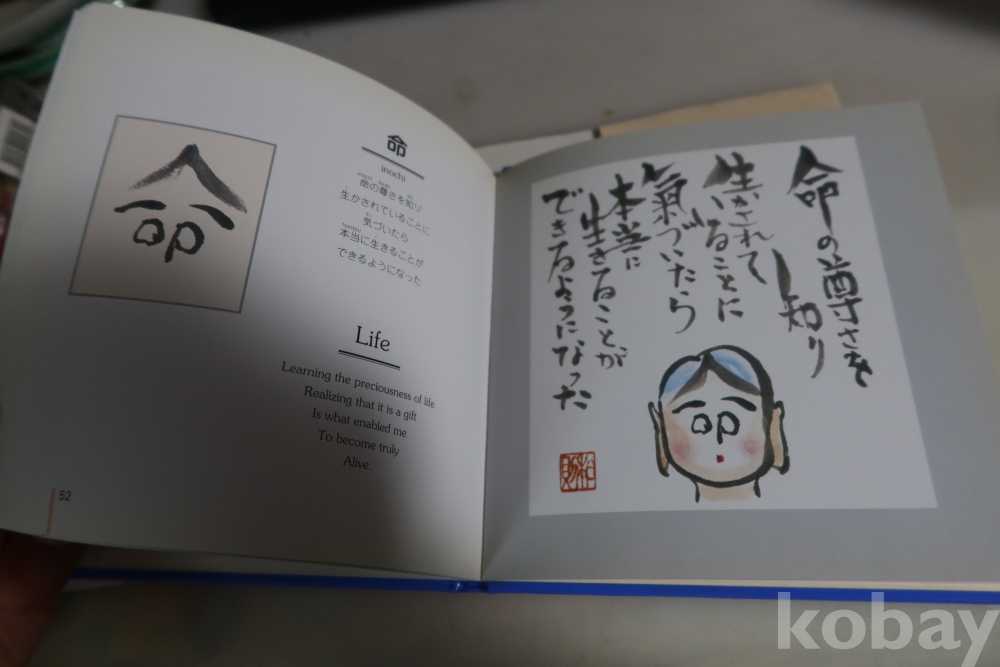 命
命
inochi
命の尊さを知り
生かされていることに
気づいたら
本当に生きることが
できるようになった
Life
Learning the preciousness of life
Realizing that it is a gift
Is what enabled me
To become truly
Alive.
52
命の尊さを
知り
生かされて
いることに
氣づいたら
本当に
生きることが
できるようになった
命
kobay